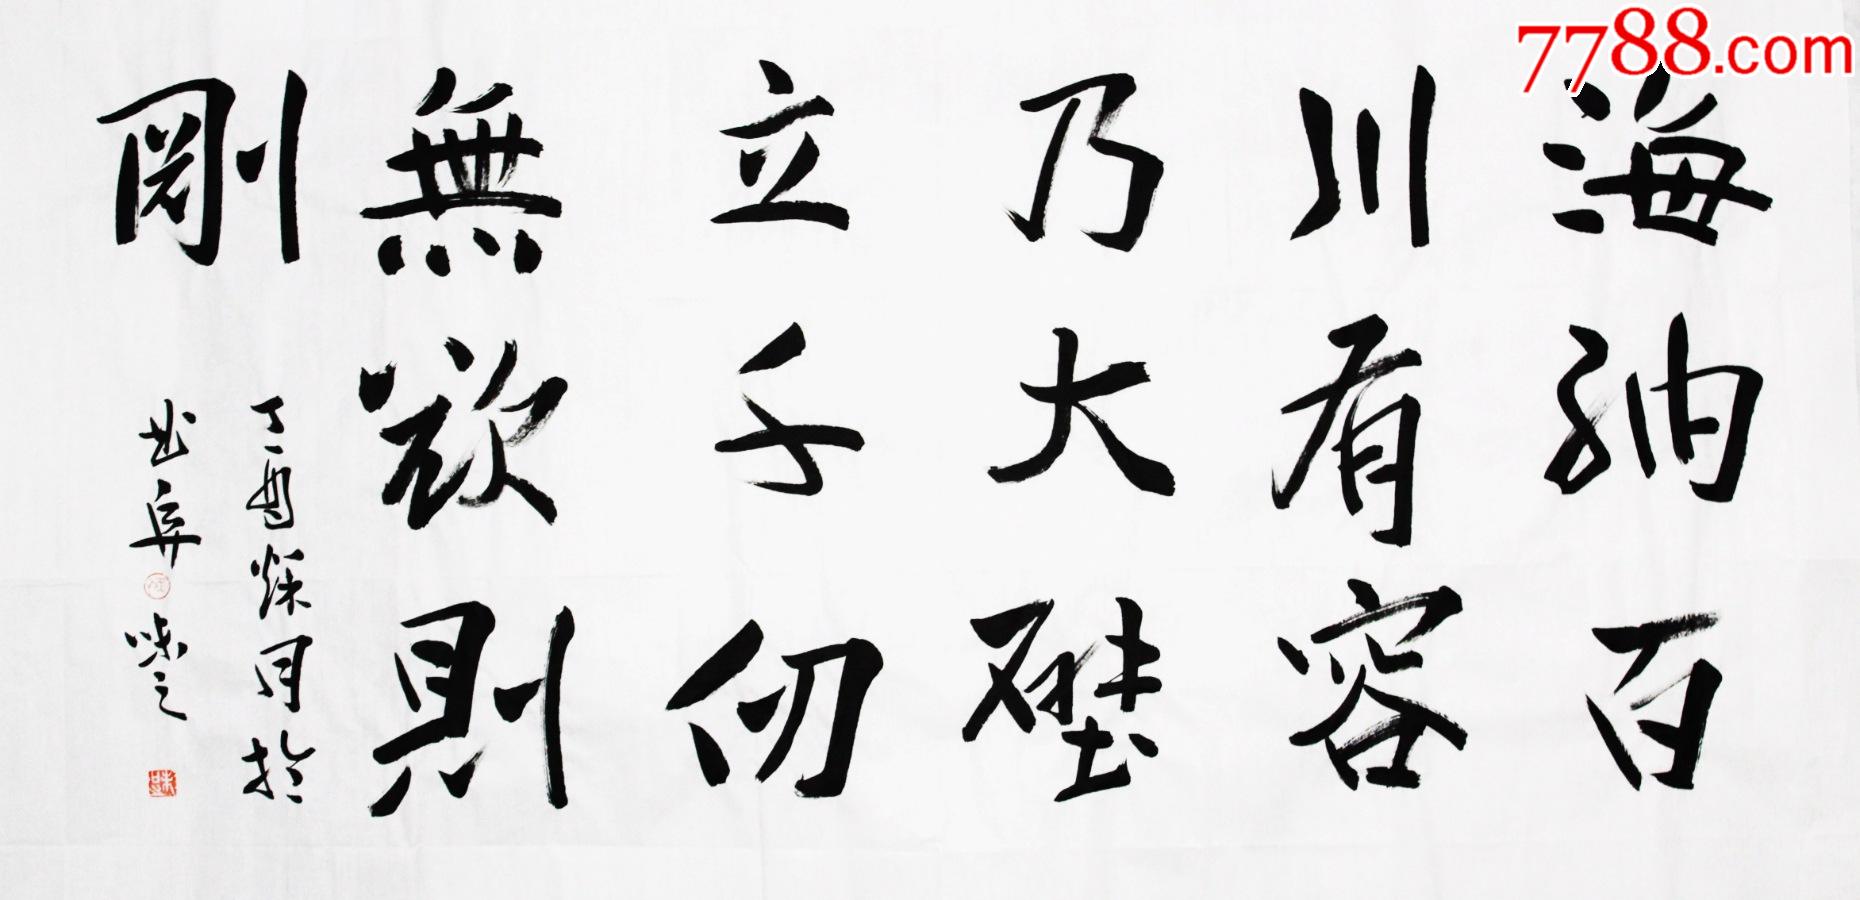 7788.com
海納百
川有容
乃大壁
立千仞
無欲則
剛
丁酉秌月於
曲阜